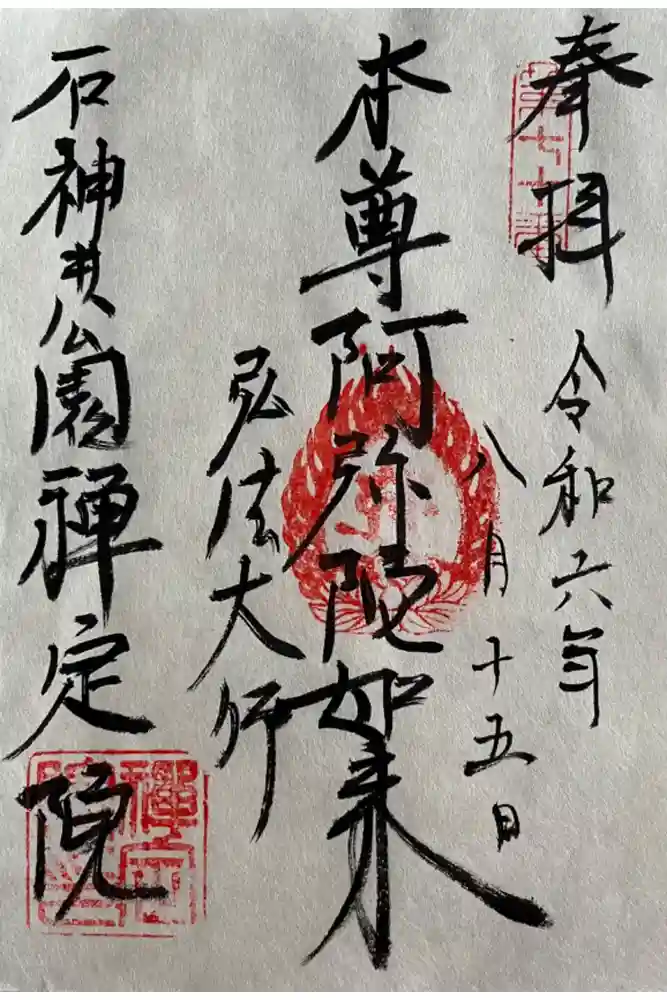 奉拝
令和六年
八月十五日
本尊阿弥陀如来
弘法大師
石神井公園禅定院